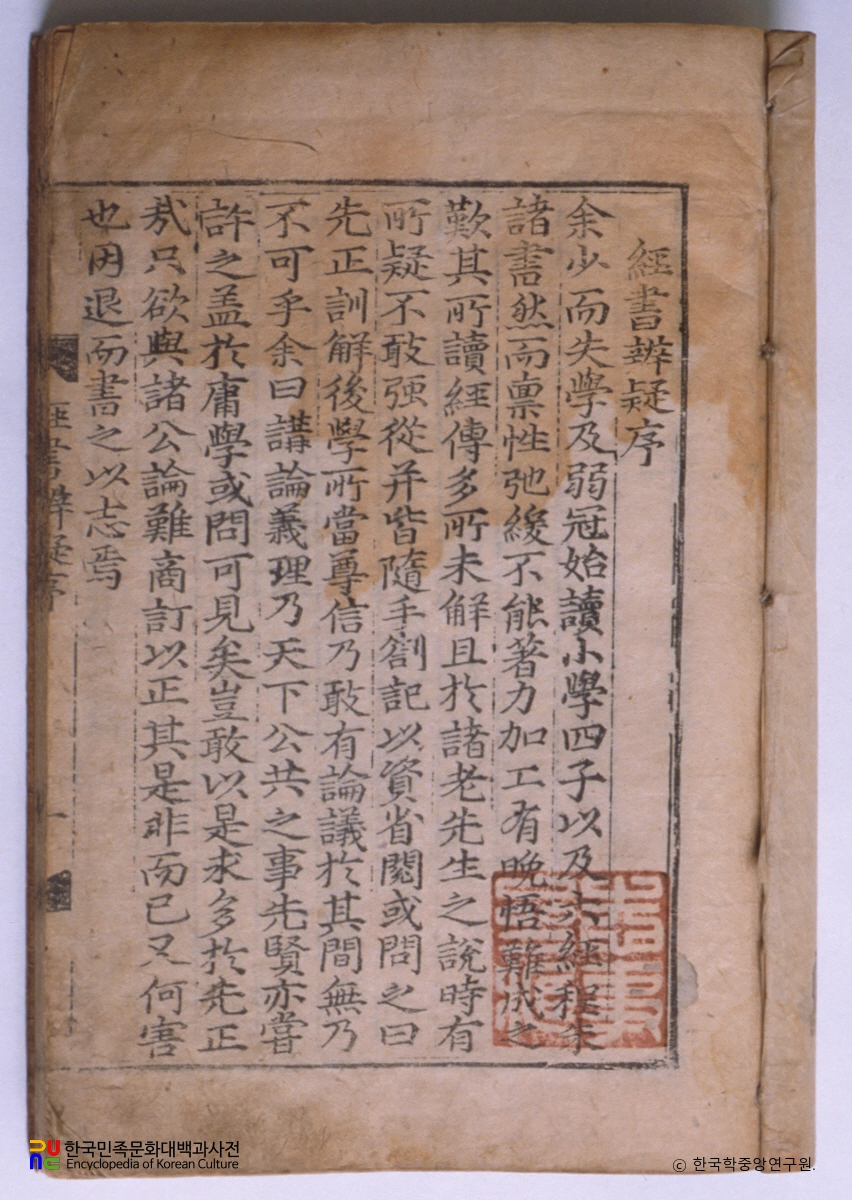 經書辨疑序
余少而失學及弱冠始讀小學四子以及六經程朱
諸書然而禀性弛緩不能著力加工有晩悟難成之
歎其所讀經傳多所未解且於諸老先生之說時有
所疑不敢强從并皆隨手劄記以資省閱或問之曰
先正訓解後學所當尊信乃敢有論議於其間無乃
不可乎余曰講論義理乃天下公共之事先賢亦嘗
許之盖於庸學或問可見矣豈敢以是求多於先正
㦲只欲與諸公論難商訂以正其是非而已又何害
也因退而書之以志焉
經書辨疑序
一
한국민족문화대백과사전
Encyclopedia of Korean Culture
© 한국학중앙연구원.